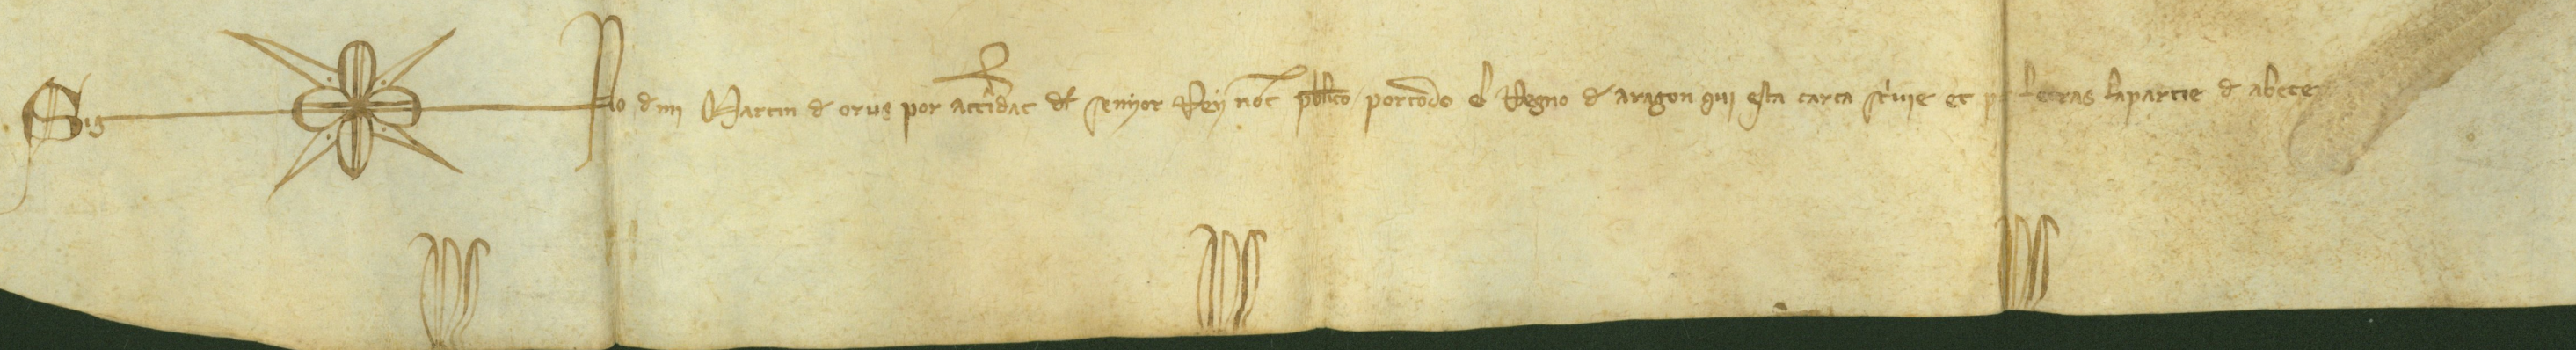 Sig no d mi Martin d orus por actoridat dl senyor Rey not publico por todo el Regno d aragon qui esta carta scrivie et por letras la partie d abece